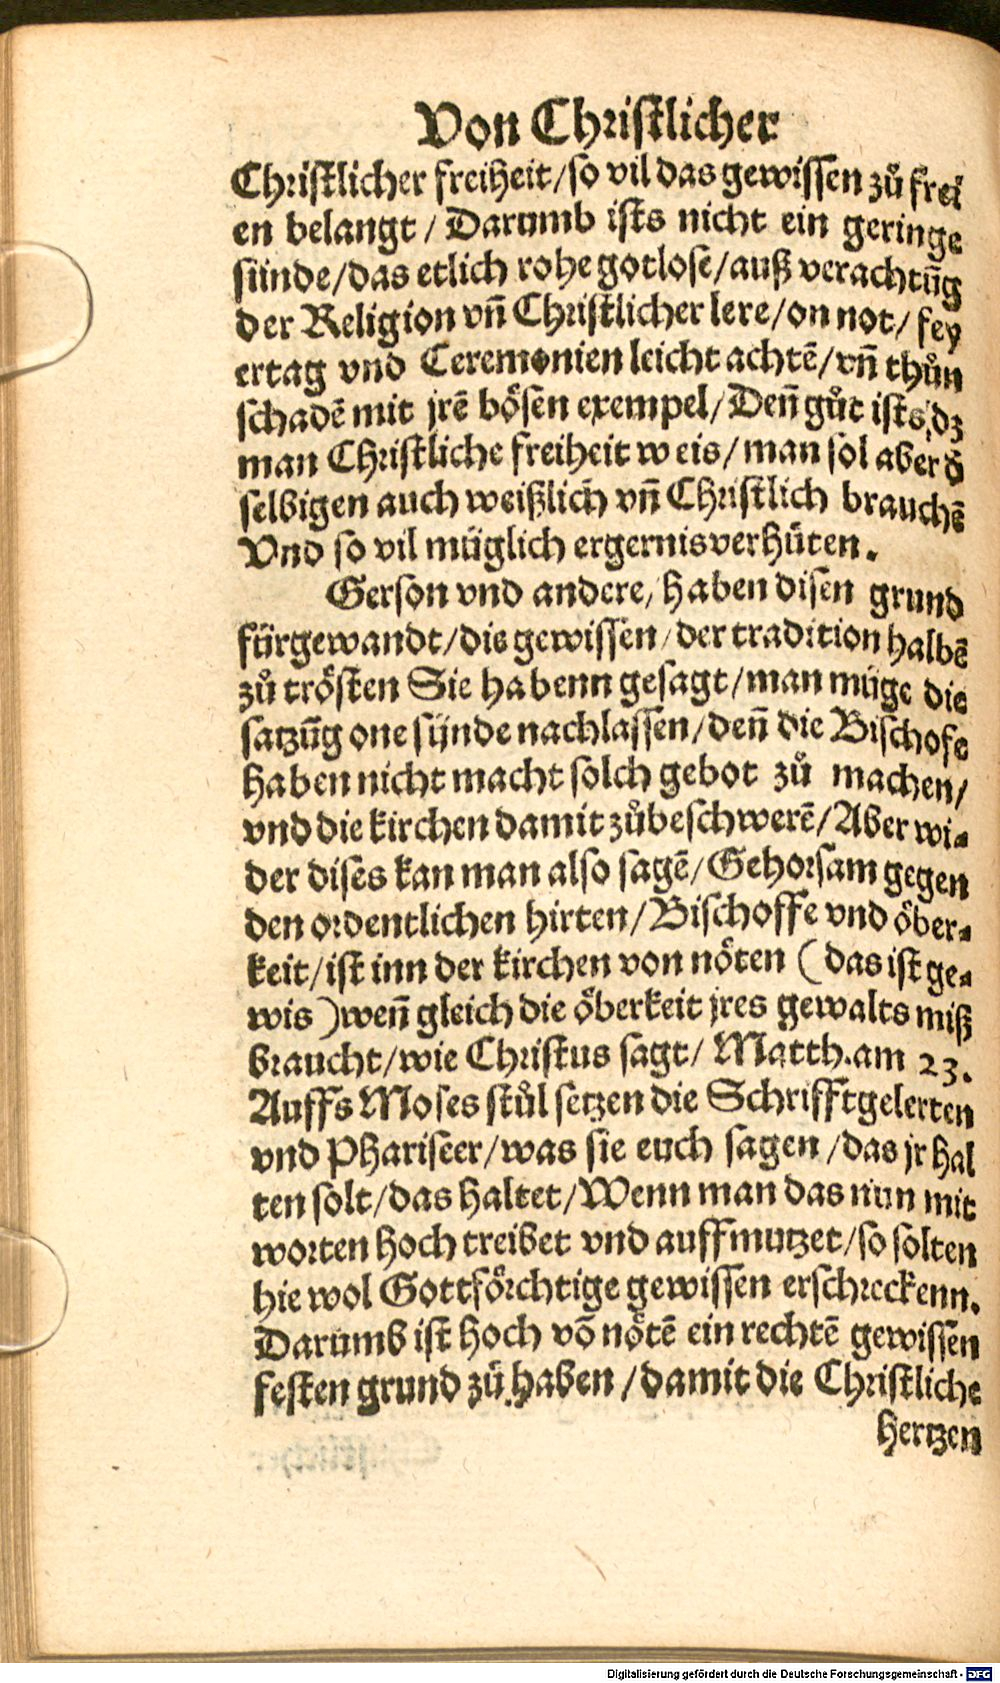 Von Christlicher
Christlicher freiheit/so vil das gewissen zů frei
en belangt / Darumb ists nicht ein geringe
sünde/das etlich rohe gotlose/auß verachtūg
der Religion vn̄ Christlicher lere/on not/ fey
ertag vnd Ceremonien leicht achtē/vn̄ thůn
schadē mit jrē bösen exempel/Den̄ gůt ists/dz
man Christliche freiheit weis/man sol aber d̄
selbigen auch weißlich vn̄ Christlich brauchē
Vnd so vil müglich ergernis verhüten.
Gerson vnd andere/haben disen grund
fürgewandt/die gewissen/der tradition halbē
zů trösten Sie habenn gesagt/man müge die
satzūg one sünde nachlassen/den̄ die Bischofe
haben nicht macht solch gebot zů machen/
vnd die kirchen damit zůbeschwerē/Aber wi-
der dises kan man also sagē/Gehorsam gegen
den ordentlichen hirten/Bischoffe vnd öber-
keit/ist inn der kirchen von nöten (das ist ge-
wis)wen̄ gleich die öberkeit jres gewalts miß
braucht/wie Christus sagt/ Matth.am 23.
Auffs Moses stůl setzen die Schrifftgelerten
vnd Phariseer/was sie euch sagen /das jr hal
ten solt/das haltet/Wenn man das nun mit
worten hoch treibet vnd auffmutzet/so solten
hie wol Gottförchtige gewissen erschreckenn.
Darumb ist hoch vō nötē ein rechtē gewissen
festen grund zů haben /damit die Christliche
hertzen
Digitalisierung gefördert durch die Deutsche Forschungsgemeinschaft - DFG